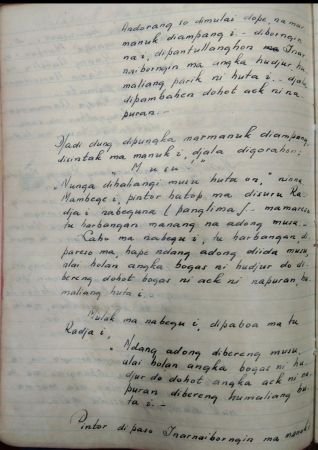 Andorang so dimulai dope, na mar
manuk diampang i - diborngin
na i, dipantullanghon ma Inar
naiborngin ma angka hudjur hu
maliang parik ni huta i - djala
dipambaben dohot aek ni na-
puran.-
Djadi dung dipungka narmanuk diampang,
disintak ma manuk i, djala digorahon:
" Musu! "
"Nunga dihaliangi musu huta on," ninna
Mambege i, pintor hatop ma disuru Ra-
dja i nabeguna (panglima). mamareso
tu harbangan manang na adong musu.-
Laho ma nabegu i, tu harbangan di
pareso ma, hape ndang adong diida musu,
alai holan angka bogas ni hudjur do di-
bereng dohot bogas ni aek ni napuran, hu
maliang huta i.-
Mulak ma nabegu i, dipaboa ma tu
Radja i,
" Ndang adong dibereng musu,
alai holan angka bogas ni hu-
djur do dohot angka aek ni na-
puran dibereng humaliang hu-
ta i.-
Pintor dipaso Inarnaiborngin ma manuk